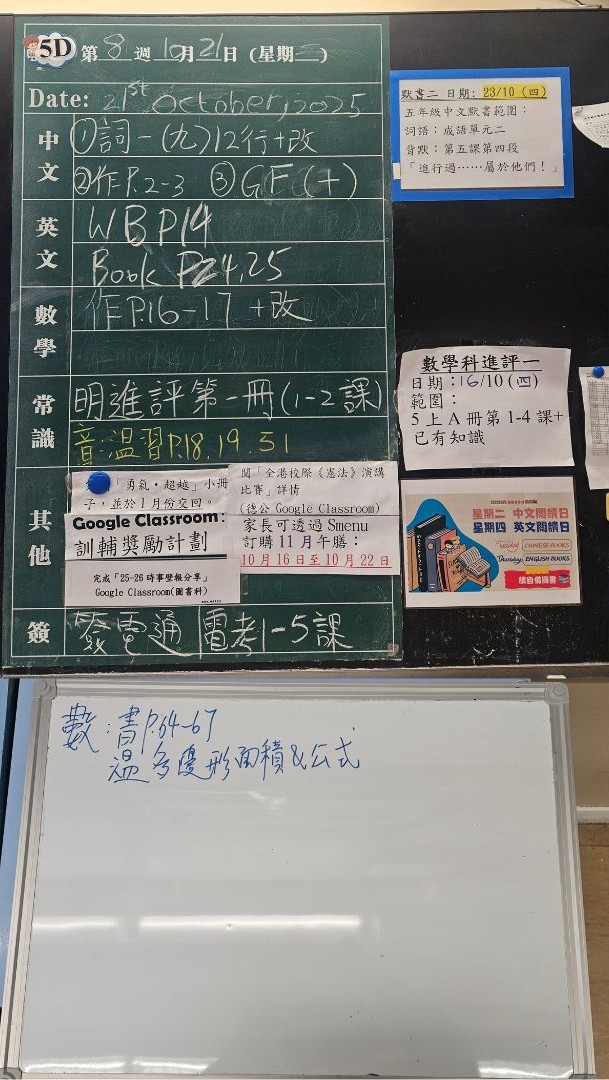 5D 第 8 週 10 月 21 日 (星期二)
Date: 21st October, 2025
中文
①詞一(九)12行+改
②作P.2-3 ③GF(十)
英文
WB P14
Book P24,25
數學
作P.16-17 +改
常識
明進評第一冊(1-2課)
音:溫習P.18.19.51
其他
「勇氣・超越」小冊
子,並於1月份交回。
Google Classroom:
訓輔獎勵計劃
完成「25-26時事壁報分享」
Google Classroom(圖書科)
閱「全港校際《憲法》演講
比賽」詳情
(德公 Google Classroom)
家長可透過 Smenu
訂購 11 月午膳:
10 月 16 日至 10 月 22 日
簽
簽電通 電考1-5課
默書二 日期: 23/10 (四)
五年級中文默書範圍:
詞語:成語單元二
背默:第五課第四段
「進行過……屬於他們!」
數學科進評一
日期:16/10 (四)
範圍:
5 上 A 冊第 1-4 課+
已有知識
星期二 中文閱讀日
星期四 英文閱讀日
Tuesday CHINESE BOOKS
Thursday ENGLISH BOOKS
請自備圖書
數:書P.64-67
溫多邊形面積&公式